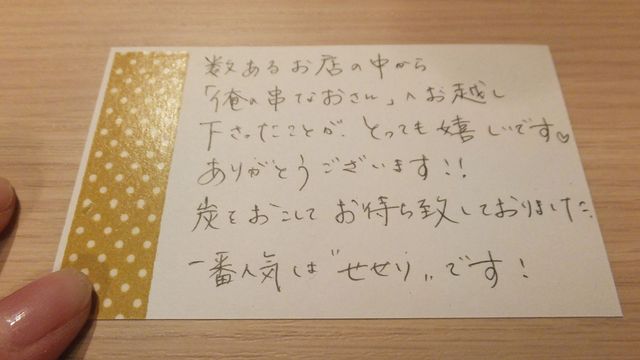 数あるお店の中から
「俺の串なおさん」へお越し
下さったことが、とっても嬉しいです♡
ありがとうございます!!
炭をおこしてお待ち致しておりました。
一番人気は"せせり"です!